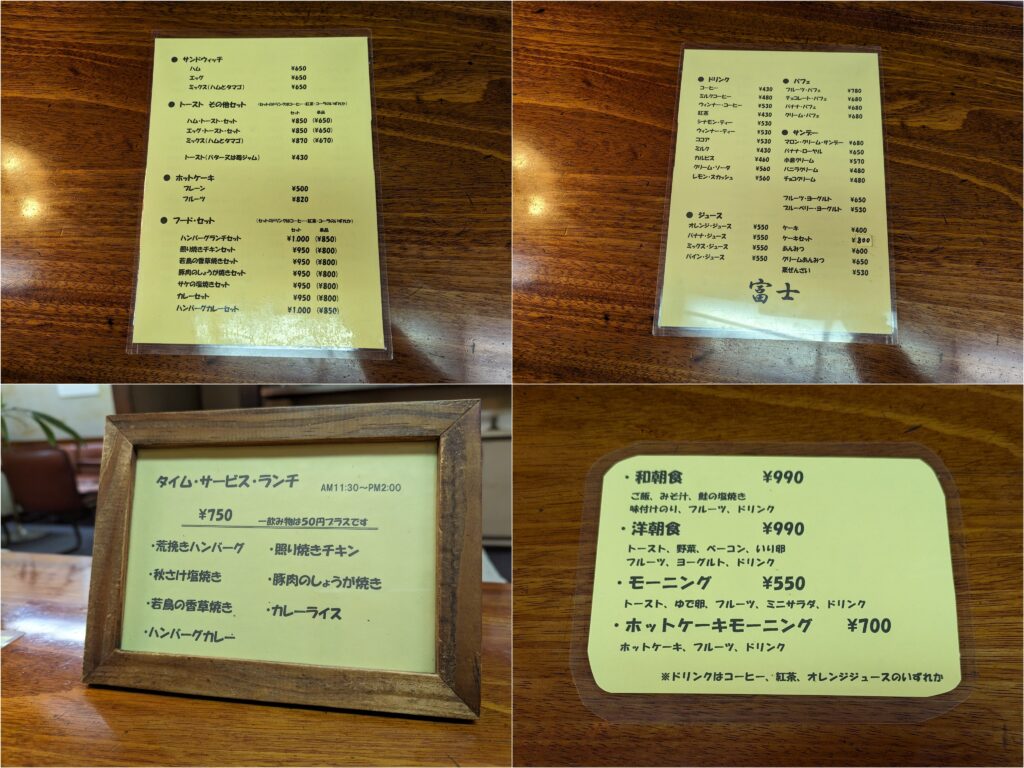 ● サンドウィッチ
ハム ¥650
エッグ ¥650
ミックス(ハムとタマゴ) ¥650
● トースト その他セット (セットのドリンクはコーヒー・紅茶・コーラのいずれか)
セット 単品
ハム・トースト・セット ¥850 (¥650)
エッグ・トースト・セット ¥850 (¥650)
ミックス(ハムとタマゴ) ¥870 (¥670)
トースト(バター又は苺ジャム) ¥430
● ホットケーキ
プレーン ¥500
フルーツ ¥820
● フード・セット (セットのドリンクはコーヒー・紅茶・コーラのいずれか)
セット 単品
ハンバーグランチセット ¥1,000 (¥850)
照り焼きチキンセット ¥950 (¥800)
若鳥の香草焼きセット ¥950 (¥800)
豚肉のしょうが焼きセット ¥950 (¥800)
サケの塩焼きセット ¥950 (¥800)
カレーセット ¥950 (¥800)
ハンバーグカレーセット ¥1,000 (¥850)
● ドリンク
コーヒー ¥430
ミルクコーヒー ¥480
ウィンナー・コーヒー ¥530
紅茶 ¥430
シナモン・ティー ¥530
ウィンナー・ティー ¥530
ココア ¥530
ミルク ¥430
カルピス ¥460
クリーム・ソーダ ¥560
レモン・スカッシュ ¥560
● ジュース
オレンジ・ジュース ¥550
バナナ・ジュース ¥550
ミックス・ジュース ¥550
パイン・ジュース ¥550
● パフェ
フルーツ・パフェ ¥780
チョコレート・パフェ ¥680
バナナ・パフェ ¥680
クリーム・パフェ ¥680
● サンデー
マロン・クリーム・サンデー ¥680
バナナ・ローヤル ¥650
小倉クリーム ¥570
バニラクリーム ¥480
チョコクリーム ¥480
フルーツ・ヨーグルト ¥650
ブルーベリー・ヨーグルト ¥530
ケーキ ¥400
ケーキセット ¥800
あんみつ ¥600
クリームあんみつ ¥650
栗ぜんざい ¥530
富士
タイム・サービス・ランチ AM11:30〜PM2:00
¥750 一飲み物は50円プラスです
・荒挽きハンバーグ ・照り焼きチキン
・秋さけ塩焼き ・豚肉のしょうが焼き
・若鳥の香草焼き ・カレーライス
・ハンバーグカレー
・和朝食 ¥990
ご飯、みそ汁、鮭の塩焼き
味付けのり、フルーツ、ドリンク
・洋朝食 ¥990
トースト、野菜、ベーコン、いり卵
フルーツ、ヨーグルト、ドリンク
・モーニング ¥550
トースト、ゆで卵、フルーツ、ミニサラダ、ドリンク
・ホットケーキモーニング ¥700
ホットケーキ、フルーツ、ドリンク
※ドリンクはコーヒー、紅茶、オレンジジュースのいずれか